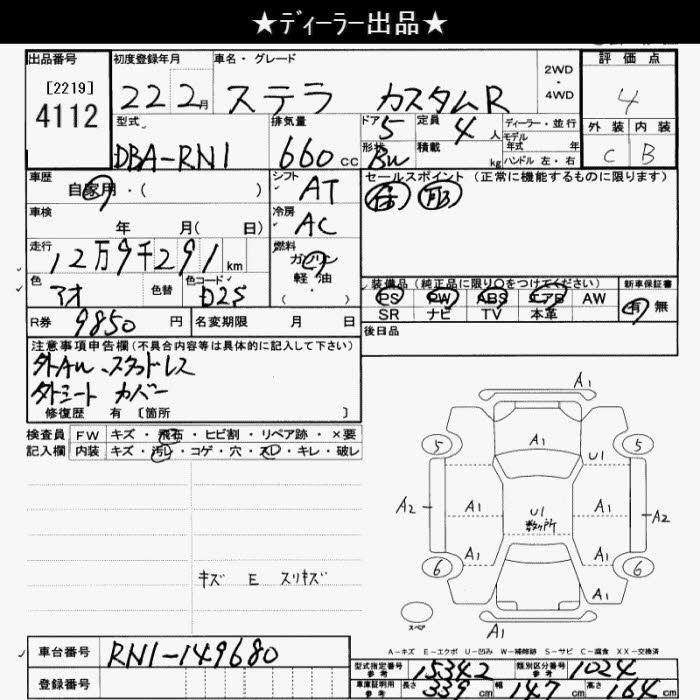 ★ディーラー出品★
出品番号 初度登録年月 車名・グレード 評価点
[2219] 2WD
4112 22 2月 ステラ カスタムR ・ 4WD 4
型式 排気量 ドア 定員 ディーラー・並行 外装 内装
DBA-RN1 660cc 5 4人 モデル年式 年 C B
形状 積載 kg ハンドル 左・右
車歴 自家用・( ) シフト AT セールスポイント(正常に機能するものに限ります)
車検 年 月( 日) 冷房 AC
走行 12万9千291km 燃料 ガソリン
軽油
・
色 アオ 色替 色コード D2S 装備品(純正品に限り○をつけてください) 新車保証書
PS PW ABS エアB AW 有 無
R券 9850円 名変期限 月 日 SR ナビ TV 本革
後日品
注意事項申告欄(不具合内容等は具体的に記入して下さい)
外AW、スタッドレス
外シート カバー
修復歴 有 〔箇所 〕
検査員 FW キズ・飛石・ヒビ割・リペア跡・×要
記入欄 内装 キズ・汚レ・コゲ・穴・スレ・キレ・破レ
A1
5 A1 5
U1
A2 A1 U1 A1 A2
数ヶ所
6 A1 A1 6
キズ E スリキズ
A1
スペア A1
A-キズ E-エクボ U-凹み W-補修跡 S-サビ C-腐食 XX-交換済
車台番号 RN1-149680
型式指定番号 参考 15342 類別区分番号 参考 1024
登録番号
車庫証明用 参考 長さ 339cm 幅 147cm 高さ 164cm